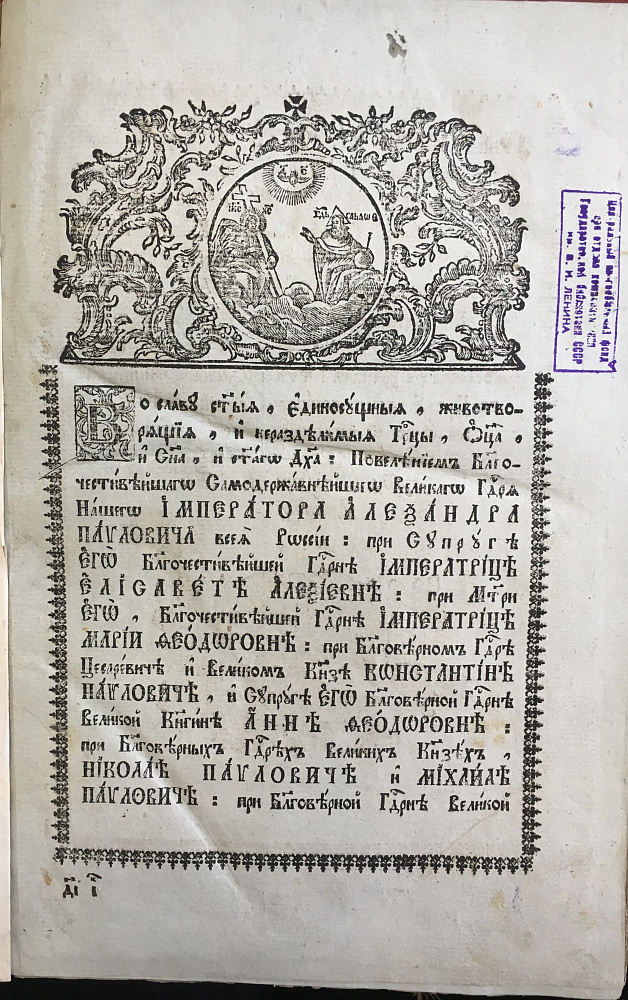 ІИ҃С ХС҃
БГ҃Ъ САВАѠѲ
Во славу ст҃ы́ѧ, Е҆диносу́щныѧ, живоътво-
рѧ́щїѧ, и҆ нераздѣли́мыѧ Трⷪ҇цы, Ѻ҆ц҃а̀,
и҆ Сн҃а, и҆ ст҃а́гѡ Дх҃а: Повелѣ́нїемъ Бл҃го-
чести́вѣйшагѡ Самодержа́внѣйшагѡ Вели́кагѡ Гдⷭ҇рѧ
На́шегѡ І҆МПЕРА́ТОРА А҆ЛЕѮА́НДРА
ПА́ѴЛОВИЧА всеѧ̀ Рѡссі́и: при Сꙋпрꙋ́гѣ
Е҆ГѠ̀ Бл҃гочести́вѣйшей Гдⷭ҇рнѣ І҆МПЕРАТРИ́ЦѢ
Е҆ЛІСАВЕ́ТѢ А҆ЛЕѮІ́ЕВНѢ: при Мт҃ри
Е҆ГѠ̀, Бл҃гочести́вѣйшей Гдⷭ҇рнѣ І҆МПЕРАТРИ́ЦѢ
МАРІ́И ѲЕО́ДѠРОВНѢ: при Бл҃говѣ́рномъ Гдⷭ҇рѣ
Цесаре́вичѣ и҆ Вели́комъ Кн҃зѣ КѠНСТАНТІ́НѢ
ПА́ѴЛОВИЧѢ, и҆ Сꙋпрꙋ́гѣ Е҆ГѠ̀ Бл҃говѣ́рной Гдⷭ҇рнѣ
Вели́кой Кн҃ги́нѣ А҆́ННѢ ѲЕО́ДѠРОВНѢ:
при Бл҃говѣ́рныхъ Гдⷭ҇рѣхъ Вели́кихъ Кн҃зѣ́хъ,
НІКОЛА́Ѣ ПА́ѴЛОВИЧѢ и҆ МІХАИ́ЛѢ
ПА́ѴЛОВИЧѢ: при Бл҃говѣ́рной Гдⷭ҇рнѣ Вели́кой
Государственной библиотеки СССР
им. В. И. ЛЕНИНА